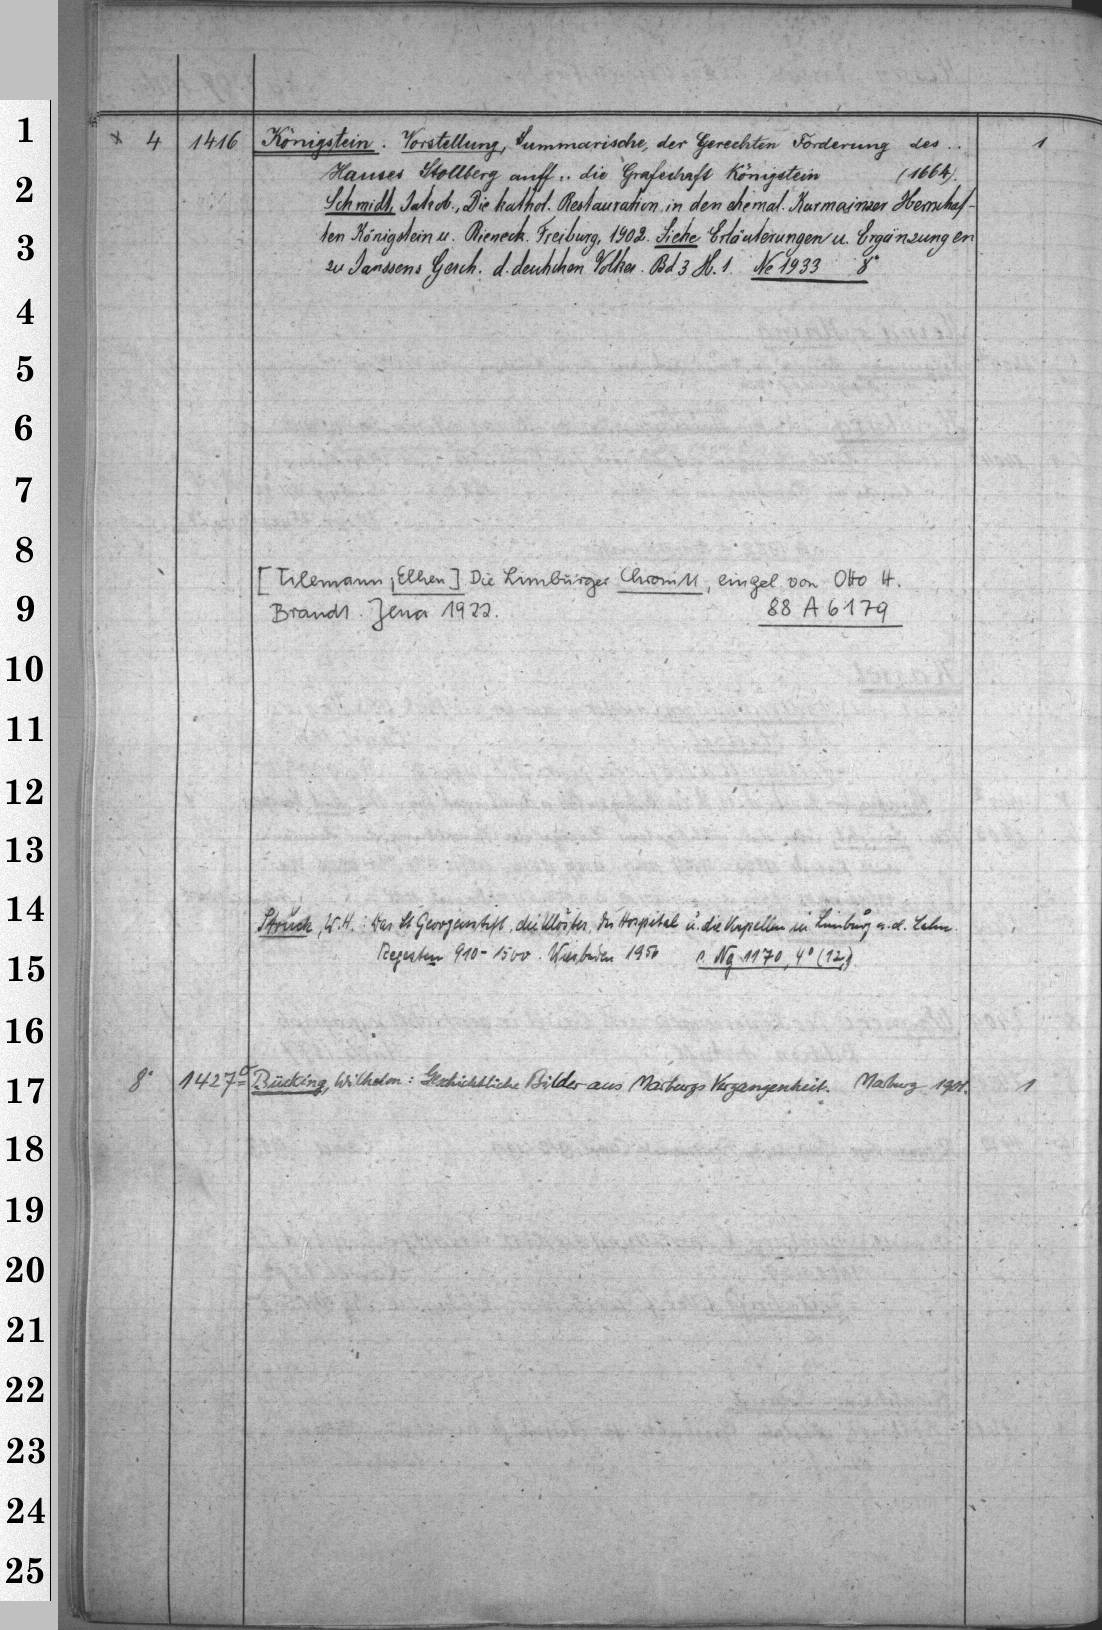 x 4 1416 Königstein. Vorstellung, Summarische, der Gerechten Forderung des .. 1
Hauses Stollberg auff .. die Grafschaft Königstein (1664).
Schmidt, Jakob., Die kathol. Restauration in den ehemal. Kurmainzer Herrschaf-
ten Königstein u. Rieneck. Freiburg, 1902. Siehe Erläuterungen u. Ergänzungen
zu Janssens Gesch. d. deutschen Volkes. Bd 3 H. 1. Ne 1933 8°
[Tilemann, Elhen] Die Limburger Chronik, eingel. von Otto H.
Brandt. Jena 1922. 88 A 6179
Struck, W.H.: Das St Georgenstift, die Klöster, das Hospital u. die Kapellen in Limburg a. d. Lahn.
Regesten 910-1500. Wiesbaden 1956 s. Ng 1170, 4° (12,)
8° 1427a Bücking, Wilhelm: Geschichtliche Bilder aus Marburgs Vergangenheit. Marburg 1901. 1
1
2
3
4
5
6
7
8
9
10
11
12
13
14
15
16
17
18
19
20
21
22
23
24
25